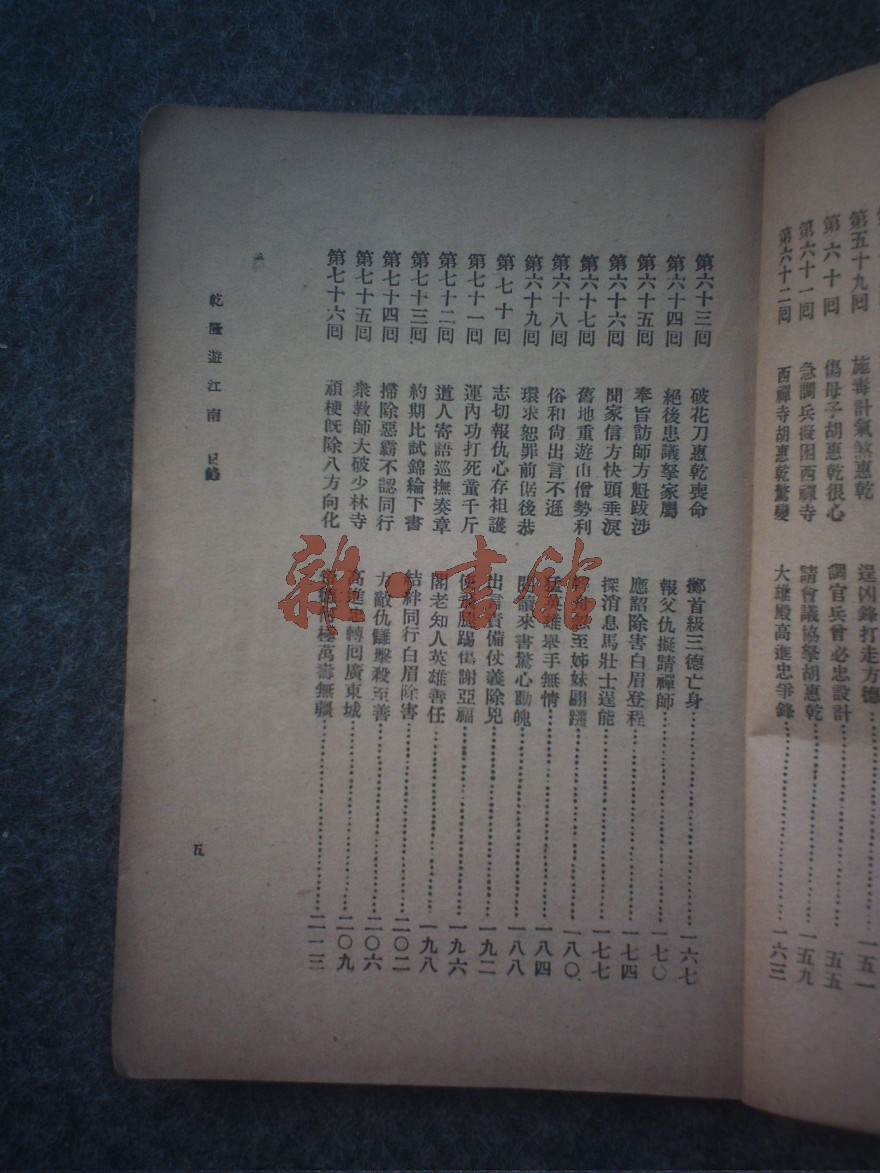 第五十九回 施毒計氣煞惠乾 逞凶鋒打走方德 一五一
第六十回 傷母子胡惠乾很心 調官兵曾必忠設計 五五
第六十一回 急調兵擬困西禪寺 請會議協拏胡惠乾 一五九
第六十二回 西禪寺胡惠乾驚變 大雄殿高進忠爭鋒 一六三
第六十三回 破花刀惠乾喪命 擲首級三德亡身 一六七
第六十四回 絕後患議拏家屬 報父仇擬請禪師 一七〇
第六十五回 奉旨訪師方魁跋涉 應詔除害白眉登程 一七四
第六十六回 聞家信方快頭垂淚 探消息馬壯士逞能 一七七
第六十七回 舊地重遊山僧勢利 至姊妹 一八〇
第六十八回 俗和尙出言不遜 猛英雄舉手無情 一八四
第六十九回 環求恕罪前倨後恭 閱讀來書驚心動魄 一八八
第七十回 志切報仇心存袒護 出言責備仗義除兇 一九二
第七十一回 運內功打死童千斤 使飛腿踢傷謝亞福 一九六
第七十二回 道人寄語巡撫奏章 閣老知人英雄善任 一九八
第七十三回 約期比試錦綸下書 結絆同行白眉除害 二〇二
第七十四回 掃除惡霸不認同行 力敵仇讎擊殺至善 二〇六
第七十五回 衆教師大破少林寺 高進忠轉回廣東城 二〇九
第七十六回 頑梗旣除八方向化 萬壽無疆 二一三
乾隆遊江南 目錄
五
雜·書館